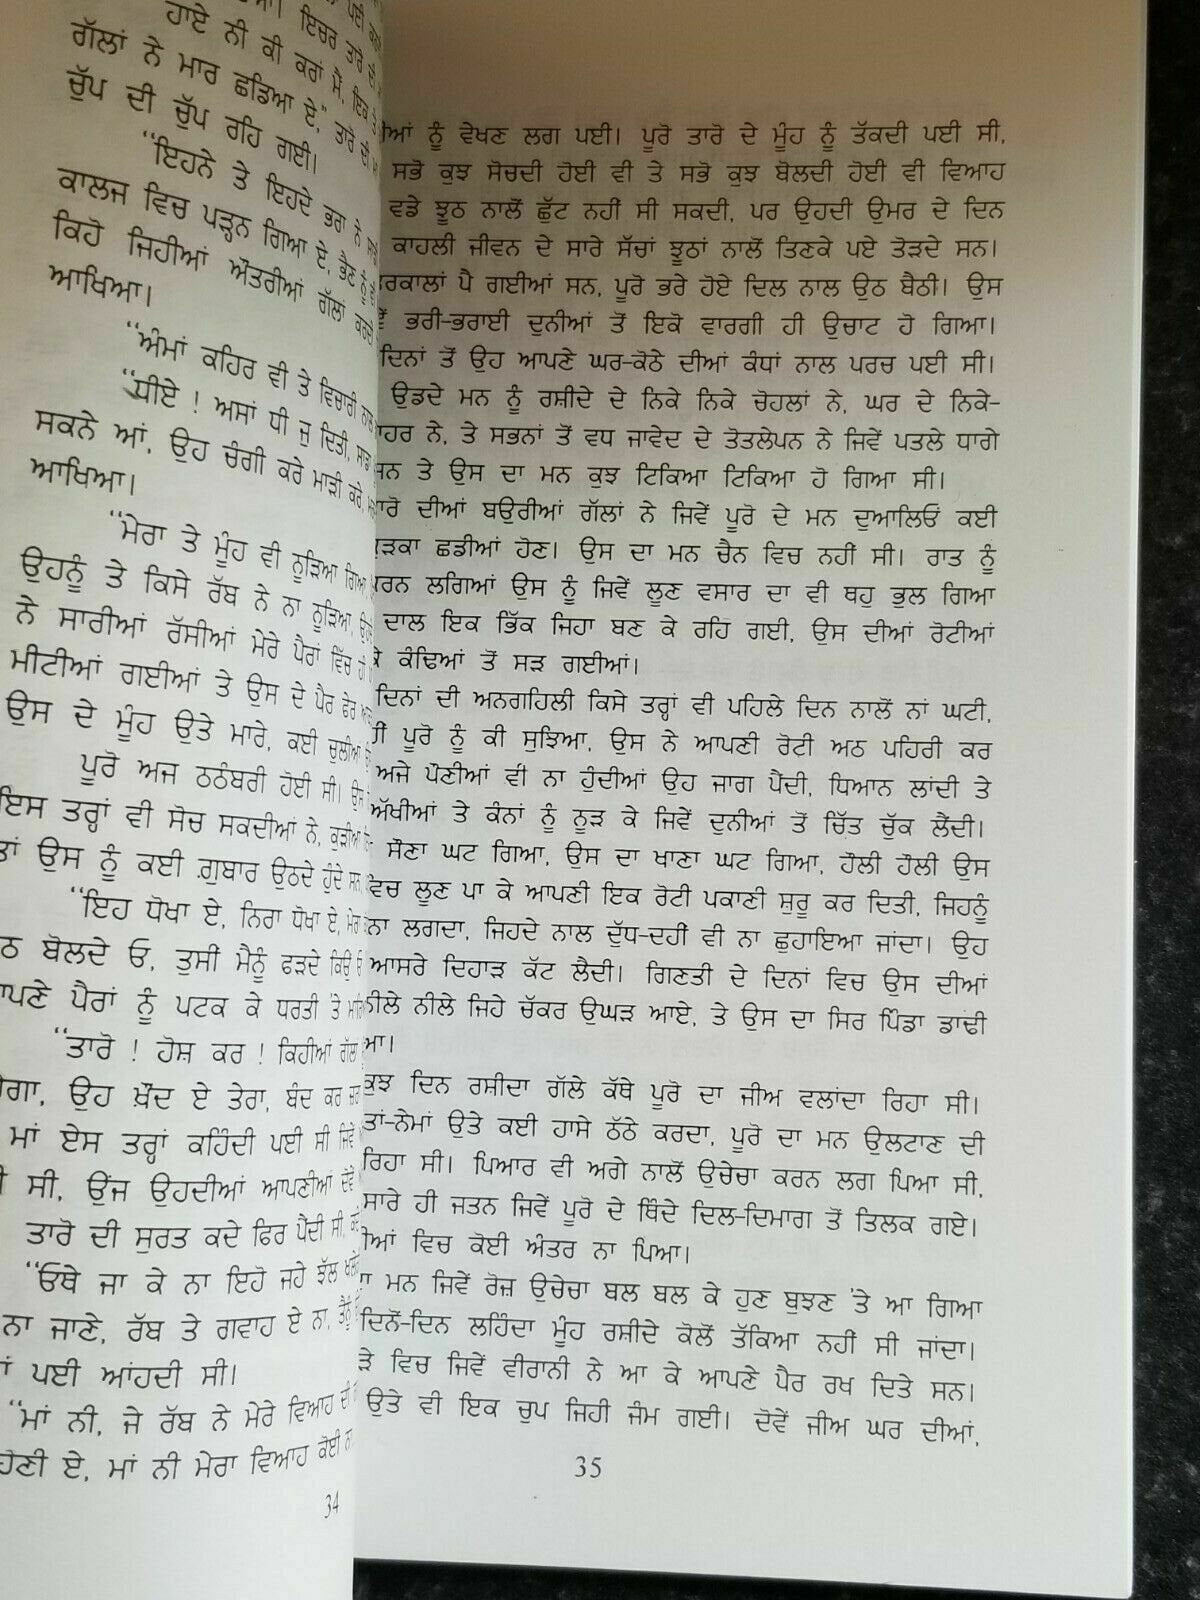 ਹਾਏ ਨੀ ਕੀ ਕਰਾਂ ਮੈਂ, ਇਕ
ਗੱਲਾਂ ਨੇ ਮਾਰ ਛਡਿਆ ਏ," ਤਾਰੋ ਦੀ
ਚੁੱਪ ਦੀ ਚੁੱਪ ਰਹਿ ਗਈ।
"ਇਹਨੇ ਤੇ ਇਹਦੇ ਭਰਾ ਨੇ
ਕਾਲਜ ਵਿਚ ਪੜ੍ਹਨ ਗਿਆ ਏ, ਭੈਣ ਨੂੰ
ਕਿਹੋ ਜਿਹੀਆਂ ਔਤਰੀਆਂ ਗੱਲਾਂ ਕਰਦੇ
ਆਖਿਆ।
"ਅੰਮਾਂ ਕਹਿਰ ਵੀ ਤੇ ਵਿਚਾਰੀ ਨਾਲ
"ਧੀਏ ! ਅਸਾਂ ਧੀ ਜੁ ਦਿਤੀ, ਸਾਡਾ
ਸਕਨੇ ਆਂ, ਉਹ ਚੰਗੀ ਕਰੇ ਮਾੜੀ ਕਰੇ,
ਆਖਿਆ।
"ਮੇਰਾ ਤੇ ਮੂੰਹ ਵੀ ਨੂੜਿਆ ਗਿਆ
ਉਹਨੂੰ ਤੇ ਕਿਸੇ ਰੱਬ ਨੇ ਨਾ ਨੂੜਿਆ,
ਨੇ ਸਾਰੀਆਂ ਰੱਸੀਆਂ ਮੇਰੇ ਪੈਰਾਂ ਵਿੱਚ ਹੀ
ਮੀਟੀਆਂ ਗਈਆਂ ਤੇ ਉਸ ਦੇ ਪੈਰ ਫੇਰ
ਉਸ ਦੇ ਮੂੰਹ ਉਤੇ ਮਾਰੇ, ਕਈ ਚੁਲੀਆਂ
ਪੂਰੋ ਅਜ ਠਠੰਬਰੀ ਹੋਈ ਸੀ। ਉਸ
ਇਸ ਤਰ੍ਹਾਂ ਵੀ ਸੋਚ ਸਕਦੀਆਂ ਨੇ, ਕੁੜੀਆਂ
ਤਾਂ ਉਸ ਨੂੰ ਕਈ ਗੁਬਾਰ ਉਠਦੇ ਹੁੰਦੇ ਸਨ,
"ਇਹ ਧੋਖਾ ਏ, ਨਿਰਾ ਧੋਖਾ ਏ, ਮੇਰਾ
ਬੋਲਦੇ ਓ, ਤੁਸੀਂ ਮੈਨੂੰ ਫੜਦੇ ਕਿਉਂ
ਪੈਰਾਂ ਨੂੰ ਪਟਕ ਕੇ ਧਰਤੀ 'ਤੇ
"ਤਾਰੋ ! ਹੋਸ਼ ਕਰ ! ਕਿਹੀਆਂ ਗੱਲਾਂ
ਉਹ ਖ਼ੌਂਦ ਏ ਤੇਰਾ, ਬੰਦ ਕਰ
ਮਾਂ ਏਸ ਤਰ੍ਹਾਂ ਕਹਿੰਦੀ ਪਈ ਸੀ ਜਿਵੇਂ
ਸੀ, ਉਂਜ ਉਹਦੀਆਂ ਆਪਣੀਆਂ ਦੋਵੇਂ
ਤਾਰੋ ਦੀ ਸੁਰਤ ਕਦੇ ਫਿਰ ਪੈਂਦੀ ਸੀ,
"ਓਥੇ ਜਾ ਕੇ ਨਾ ਇਹੋ ਜਹੇ ਝੱਲ
ਨਾ ਜਾਣੇ, ਰੱਬ ਤੇ ਗਵਾਹ ਏ ਨਾ,
ਪਈ ਆਂਹਦੀ ਸੀ।
"ਮਾਂ ਨੀ, ਜੇ ਰੱਬ ਨੇ ਮੇਰੇ ਵਿਆਹ ਦੀ
ਹੋਣੀ ਏ, ਮਾਂ ਨੀ ਮੇਰਾ ਵਿਆਹ ਕੋਈ
34
ਨੂੰ ਵੇਖਣ ਲਗ ਪਈ। ਪੂਰੋ ਤਾਰੋ ਦੇ ਮੂੰਹ ਨੂੰ ਤੱਕਦੀ ਪਈ ਸੀ,
ਸਭੋ ਕੁਝ ਸੋਚਦੀ ਹੋਈ ਵੀ ਤੇ ਸਭੋ ਕੁਝ ਬੋਲਦੀ ਹੋਈ ਵੀ ਵਿਆਹ
ਵਡੇ ਝੂਠ ਨਾਲੋਂ ਛੁੱਟ ਨਹੀਂ ਸੀ ਸਕਦੀ, ਪਰ ਉਹਦੀ ਉਮਰ ਦੇ ਦਿਨ
ਕਾਹਲੀ ਜੀਵਨ ਦੇ ਸਾਰੇ ਸੱਚਾਂ ਝੂਠਾਂ ਨਾਲੋਂ ਤਿਣਕੇ ਪਏ ਤੋੜਦੇ ਸਨ।
ਤਰਕਾਲਾਂ ਪੈ ਗਈਆਂ ਸਨ, ਪੂਰੋ ਭਰੇ ਹੋਏ ਦਿਲ ਨਾਲ ਉਠ ਬੈਠੀ। ਉਸ
ਭਰੀ-ਭਰਾਈ ਦੁਨੀਆਂ ਤੋਂ ਇਕੋ ਵਾਰਗੀ ਹੀ ਉਚਾਟ ਹੋ ਗਿਆ।
ਦਿਨਾਂ ਤੋਂ ਉਹ ਆਪਣੇ ਘਰ-ਕੋਠੇ ਦੀਆਂ ਕੰਧਾਂ ਨਾਲ ਪਰਚ ਪਈ ਸੀ।
ਉਡਦੇ ਮਨ ਨੂੰ ਰਸ਼ੀਦੇ ਦੇ ਨਿਕੇ ਨਿਕੇ ਚੋਹਲਾਂ ਨੇ, ਘਰ ਦੇ ਨਿਕੇ-
ਆਹਰ ਨੇ, ਤੇ ਸਭਨਾਂ ਤੋਂ ਵਧ ਜਾਵੇਦ ਦੇ ਤੋਤਲੇਪਨ ਨੇ ਜਿਵੇਂ ਪਤਲੇ ਧਾਗੇ
ਸਨ ਤੇ ਉਸ ਦਾ ਮਨ ਕੁਝ ਟਿਕਿਆ ਟਿਕਿਆ ਹੋ ਗਿਆ ਸੀ।
ਤਾਰੋ ਦੀਆਂ ਬਉਰੀਆਂ ਗੱਲਾਂ ਨੇ ਜਿਵੇਂ ਪੂਰੋ ਦੇ ਮਨ ਦੁਆਲਿਓਂ ਕਈ
ਤੁੜਕਾ ਛਡੀਆਂ ਹੋਣ। ਉਸ ਦਾ ਮਨ ਚੈਨ ਵਿਚ ਨਹੀਂ ਸੀ। ਰਾਤ ਨੂੰ
ਕਰਨ ਲਗਿਆਂ ਉਸ ਨੂੰ ਜਿਵੇਂ ਲੂਣ ਵਸਾਰ ਦਾ ਵੀ ਥਹੁ ਭੁਲ ਗਿਆ
ਦਾਲ ਇਕ ਭਿੱਕ ਜਿਹਾ ਬਣ ਕੇ ਰਹਿ ਗਈ, ਉਸ ਦੀਆਂ ਰੋਟੀਆਂ
ਕੰਢਿਆਂ ਤੋਂ ਸੜ ਗਈਆਂ।
ਦਿਨਾਂ ਦੀ ਅਨਗਹਿਲੀ ਕਿਸੇ ਤਰ੍ਹਾਂ ਵੀ ਪਹਿਲੇ ਦਿਨ ਨਾਲੋਂ ਨਾਂ ਘਟੀ,
ਪੂਰੋ ਨੂੰ ਕੀ ਸੁਝਿਆ, ਉਸ ਨੇ ਆਪਣੀ ਰੋਟੀ ਅਠ ਪਹਿਰੀ ਕਰ
ਅਜੇ ਪੌਣੀਆਂ ਵੀ ਨਾ ਹੁੰਦੀਆਂ ਉਹ ਜਾਗ ਪੈਂਦੀ, ਧਿਆਨ ਲਾਂਦੀ ਤੇ
ਅੱਖੀਆਂ ਤੇ ਕੰਨਾਂ ਨੂੰ ਨੂੜ ਕੇ ਜਿਵੇਂ ਦੁਨੀਆਂ ਤੋਂ ਚਿੱਤ ਚੁੱਕ ਲੈਂਦੀ।
ਸੌਣਾ ਘਟ ਗਿਆ, ਉਸ ਦਾ ਖਾਣਾ ਘਟ ਗਿਆ, ਹੌਲੀ ਹੌਲੀ ਉਸ
ਵਿਚ ਲੂਣ ਪਾ ਕੇ ਆਪਣੀ ਇਕ ਰੋਟੀ ਪਕਾਣੀ ਸ਼ੁਰੂ ਕਰ ਦਿਤੀ, ਜਿਹਨੂੰ
ਨਾ ਲਗਦਾ, ਜਿਹਦੇ ਨਾਲ ਦੁੱਧ-ਦਹੀਂ ਵੀ ਨਾ ਛੁਹਾਇਆ ਜਾਂਦਾ। ਉਹ
ਆਸਰੇ ਦਿਹਾੜ ਕੱਟ ਲੈਂਦੀ। ਗਿਣਤੀ ਦੇ ਦਿਨਾਂ ਵਿਚ ਉਸ ਦੀਆਂ
ਨੀਲੇ ਨੀਲੇ ਜਿਹੇ ਚੱਕਰ ਉਘੜ ਆਏ, ਤੇ ਉਸ ਦਾ ਸਿਰ ਪਿੰਡਾ ਡਾਢੀ
ਕੁਝ ਦਿਨ ਰਸ਼ੀਦਾ ਗੱਲੇ ਕੱਥੇ ਪੂਰੋ ਦਾ ਜੀਅ ਵਲਾਂਦਾ ਰਿਹਾ ਸੀ।
ਉਤੇ ਕਈ ਹਾਸੇ ਠੱਠੇ ਕਰਦਾ, ਪੂਰੋ ਦਾ ਮਨ ਉਲਟਾਣ ਦੀ
ਰਿਹਾ ਸੀ। ਪਿਆਰ ਵੀ ਅਗੇ ਨਾਲੋਂ ਉਚੇਚਾ ਕਰਨ ਲਗ ਪਿਆ ਸੀ,
ਸਾਰੇ ਹੀ ਜਤਨ ਜਿਵੇਂ ਪੂਰੋ ਦੇ ਥਿੰਦੇ ਦਿਲ-ਦਿਮਾਗ ਤੋਂ ਤਿਲਕ ਗਏ।
ਵਿਚ ਕੋਈ ਅੰਤਰ ਨਾ ਪਿਆ।
ਮਨ ਜਿਵੇਂ ਰੋਜ਼ ਉਚੇਚਾ ਬਲ ਬਲ ਕੇ ਹੁਣ ਬੁਝਣ 'ਤੇ ਆ ਗਿਆ
ਦਿਨੋਂ-ਦਿਨ ਲਹਿੰਦਾ ਮੂੰਹ ਰਸ਼ੀਦੇ ਕੋਲੋਂ ਤੱਕਿਆ ਨਹੀਂ ਸੀ ਜਾਂਦਾ।
ਵਿਚ ਜਿਵੇਂ ਵੀਰਾਨੀ ਨੇ ਆ ਕੇ ਆਪਣੇ ਪੈਰ ਰਖ ਦਿਤੇ ਸਨ।
ਉਤੇ ਵੀ ਇਕ ਚੁਪ ਜਿਹੀ ਜੰਮ ਗਈ। ਦੋਵੇਂ ਜੀਅ ਘਰ ਦੀਆਂ,
35